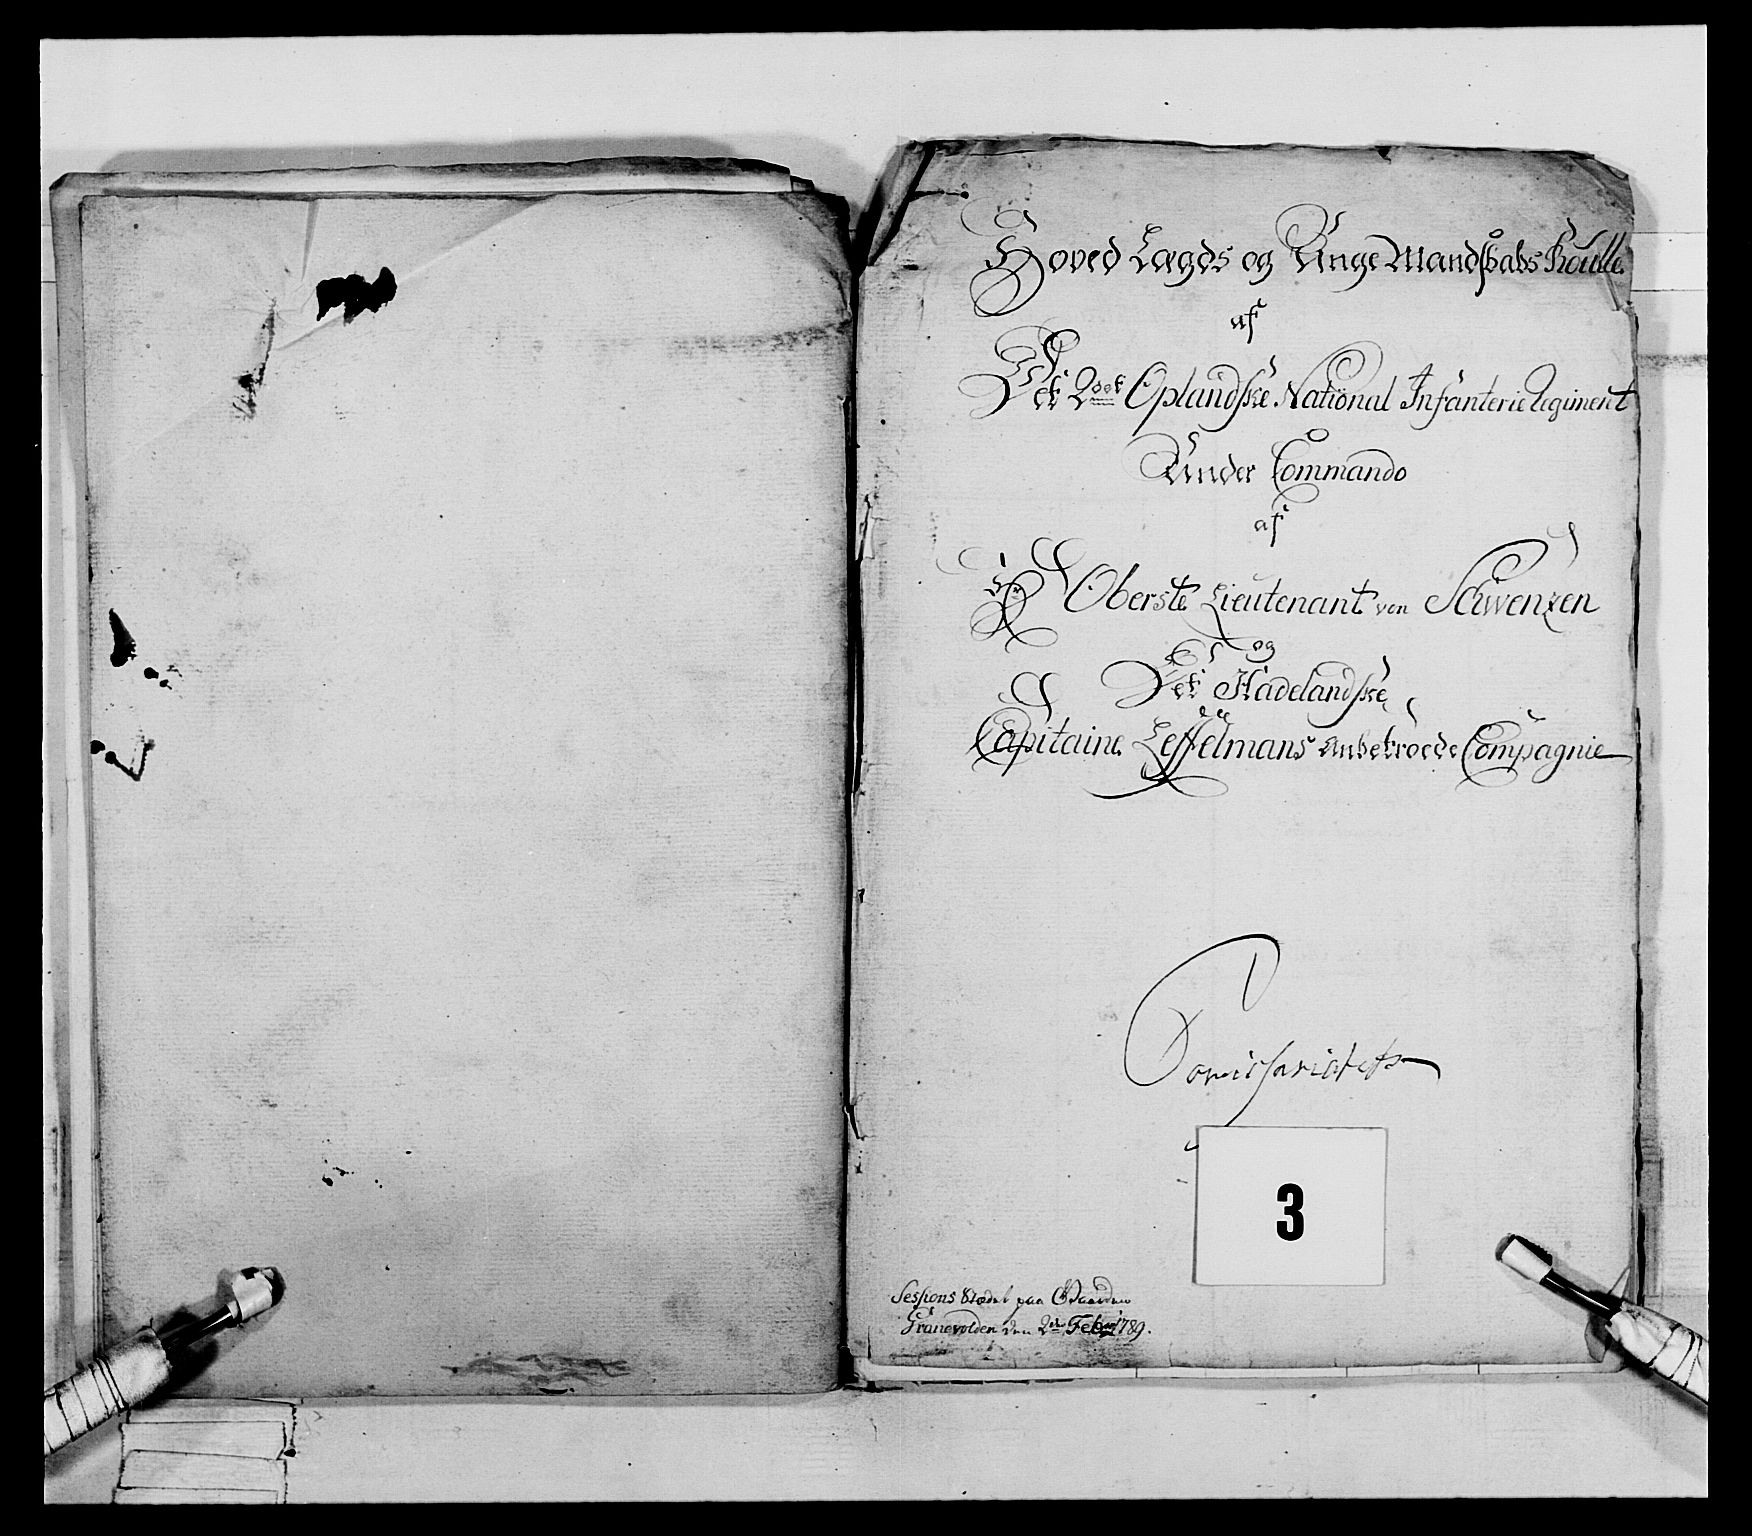 Hoved Lægds og Unge Mandskabs Roulle
af
Det 2det Oplandske National Infanterie Regiment
Under Commando
af
Hr Oberste Lieutenant von Schwenzen
og
Det Hadelandske
Capitaine Leffelmans Anbetroede Compagnie
Comissariatets
3
Sessions Stædet paa Gaarden
Granevolden den 2den Febr 1789.